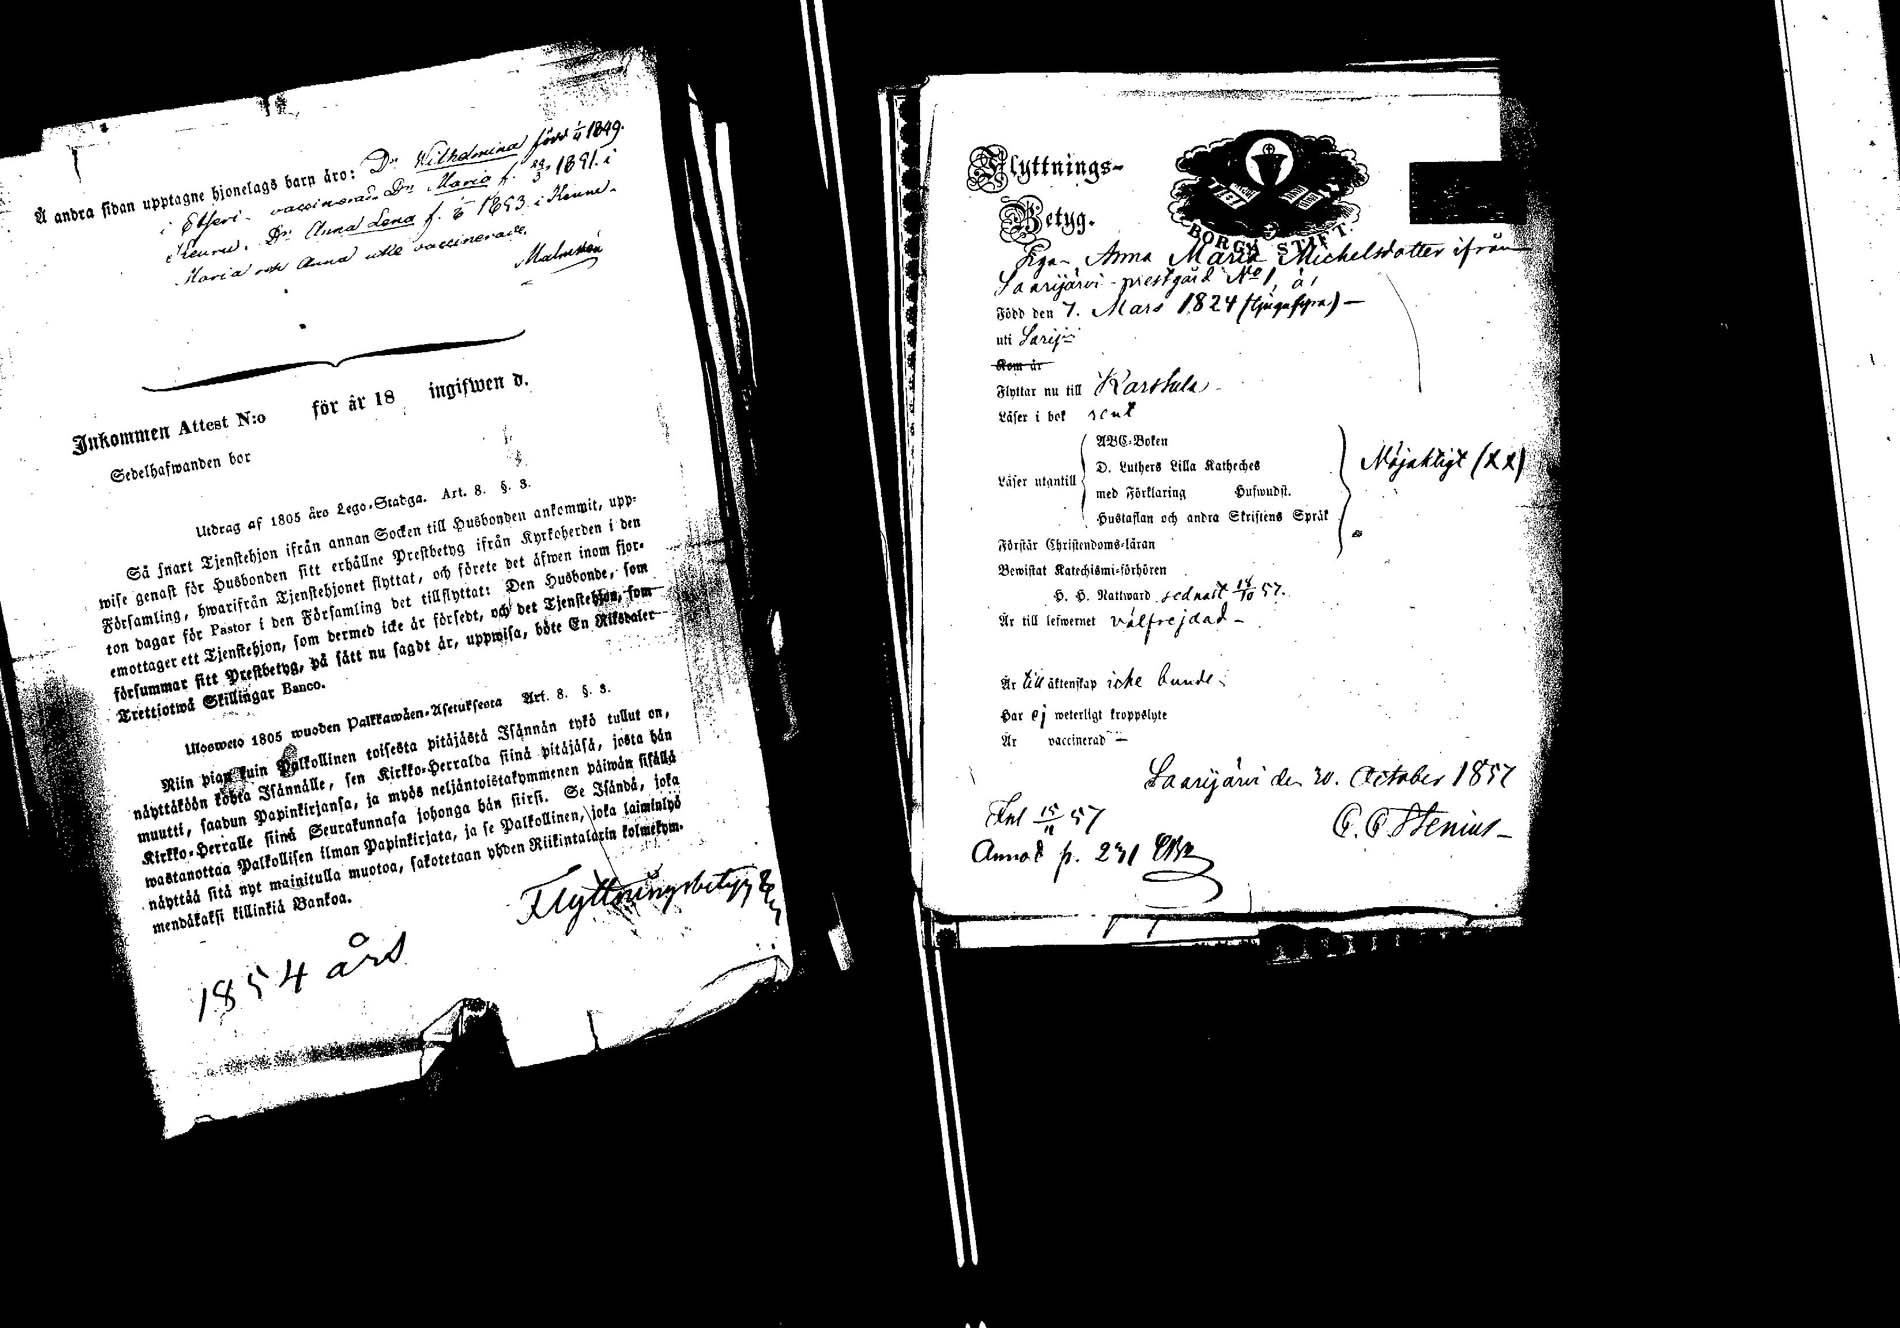 Å andra sidan upptagne hjonelags barn äro: Dr Wilhelmina född 1849.
i Etseri vaccinerad. Dr Maria f. 29/3 1851. i
Keuru. Dr Anna Lena f. 1853 i Keuru.
Maria och Anna icke vaccinerade.
Malmstén
Inkommen Attest N:o för år 18 ingifwen d.
Sedelhafwanden bor
Utdrag af 1805 års Lego-Stadga. Art. 8. §. 3.
Så snart Tjenstehjon ifrån annan Socken till Husbonden ankommit, upp-
wise genast för Husbonden sitt erhållne Prestbetyg ifrån Kyrkoherden i den
Församling, hwarifrån Tjenstehjonet flyttat, och förete det äfwen inom fjor-
ton dagar för Pastor i den Församling det tillflyttat: Den Husbonde, som
emottager ett Tjenstehjon, som dermed icke är försedt, och det Tjenstehjon, som
försummar sitt Prestbetyg, på sätt nu sagdt är, uppwisa, böte En Riksdaler
Trettiotwå Skillingar Banco.
Ulosweto 1805 wuoden Palkkawäen-Asetuksesta Art. 8. §. 3.
Niin pian kuin Palkollinen toisesta pitäjästä Isännän tykö tullut on,
näyttäköön kohta Isännälle, sen Kirkko-Herralda siinä pitäjäsä, josta hän
muutti, saadun Papinkirjansa, ja myös neljäntoistakymmenen päiwän sisällä
Kirkko-Herralle siinä Seurakunnasa johonga hän siirsi. Se Isändä, joka
wastanottaa Palkollisen ilman Papinkirjata, ja se Palkollinen, joka laiminlyö
näyttää sitä nyt mainitulla muotoa, sakotetaan yhden Riikintalarin kolmekym-
mendäkaksi killinkiä Bankoa.
Flyttningsbetyg
1854 års
Flyttnings-
Betyg.
BORGÅ STIFT.
Pga. Anna Maria Michelsdotter ifrån
Saarijärvi prestgård No 1, är
Född den 7. Mars 1824 (tjugufyra) —
uti Sarij
Kom år
Flyttar nu till Karstula
Läser i bok rent
ABC-Boken
D. Luthers Lilla Katheches
Läser utantill med Förklaring Hufwudst. Nöjaktigt (x x)
Hustaflan och andra Skriftens Språk
Förstår Christendoms-läran
Bewistat Katechismi-förhören
H. H. Nattward sednast 18/10 57.
Är till lefwernet välfrejdad —
Är till äktenskap icke bunden
Har ej weterligt kroppslyte
Är vaccinerad —
Saarijärvi den 20. October 1857
C. G. Stenius
Inl 15/11 57
Annot p. 231